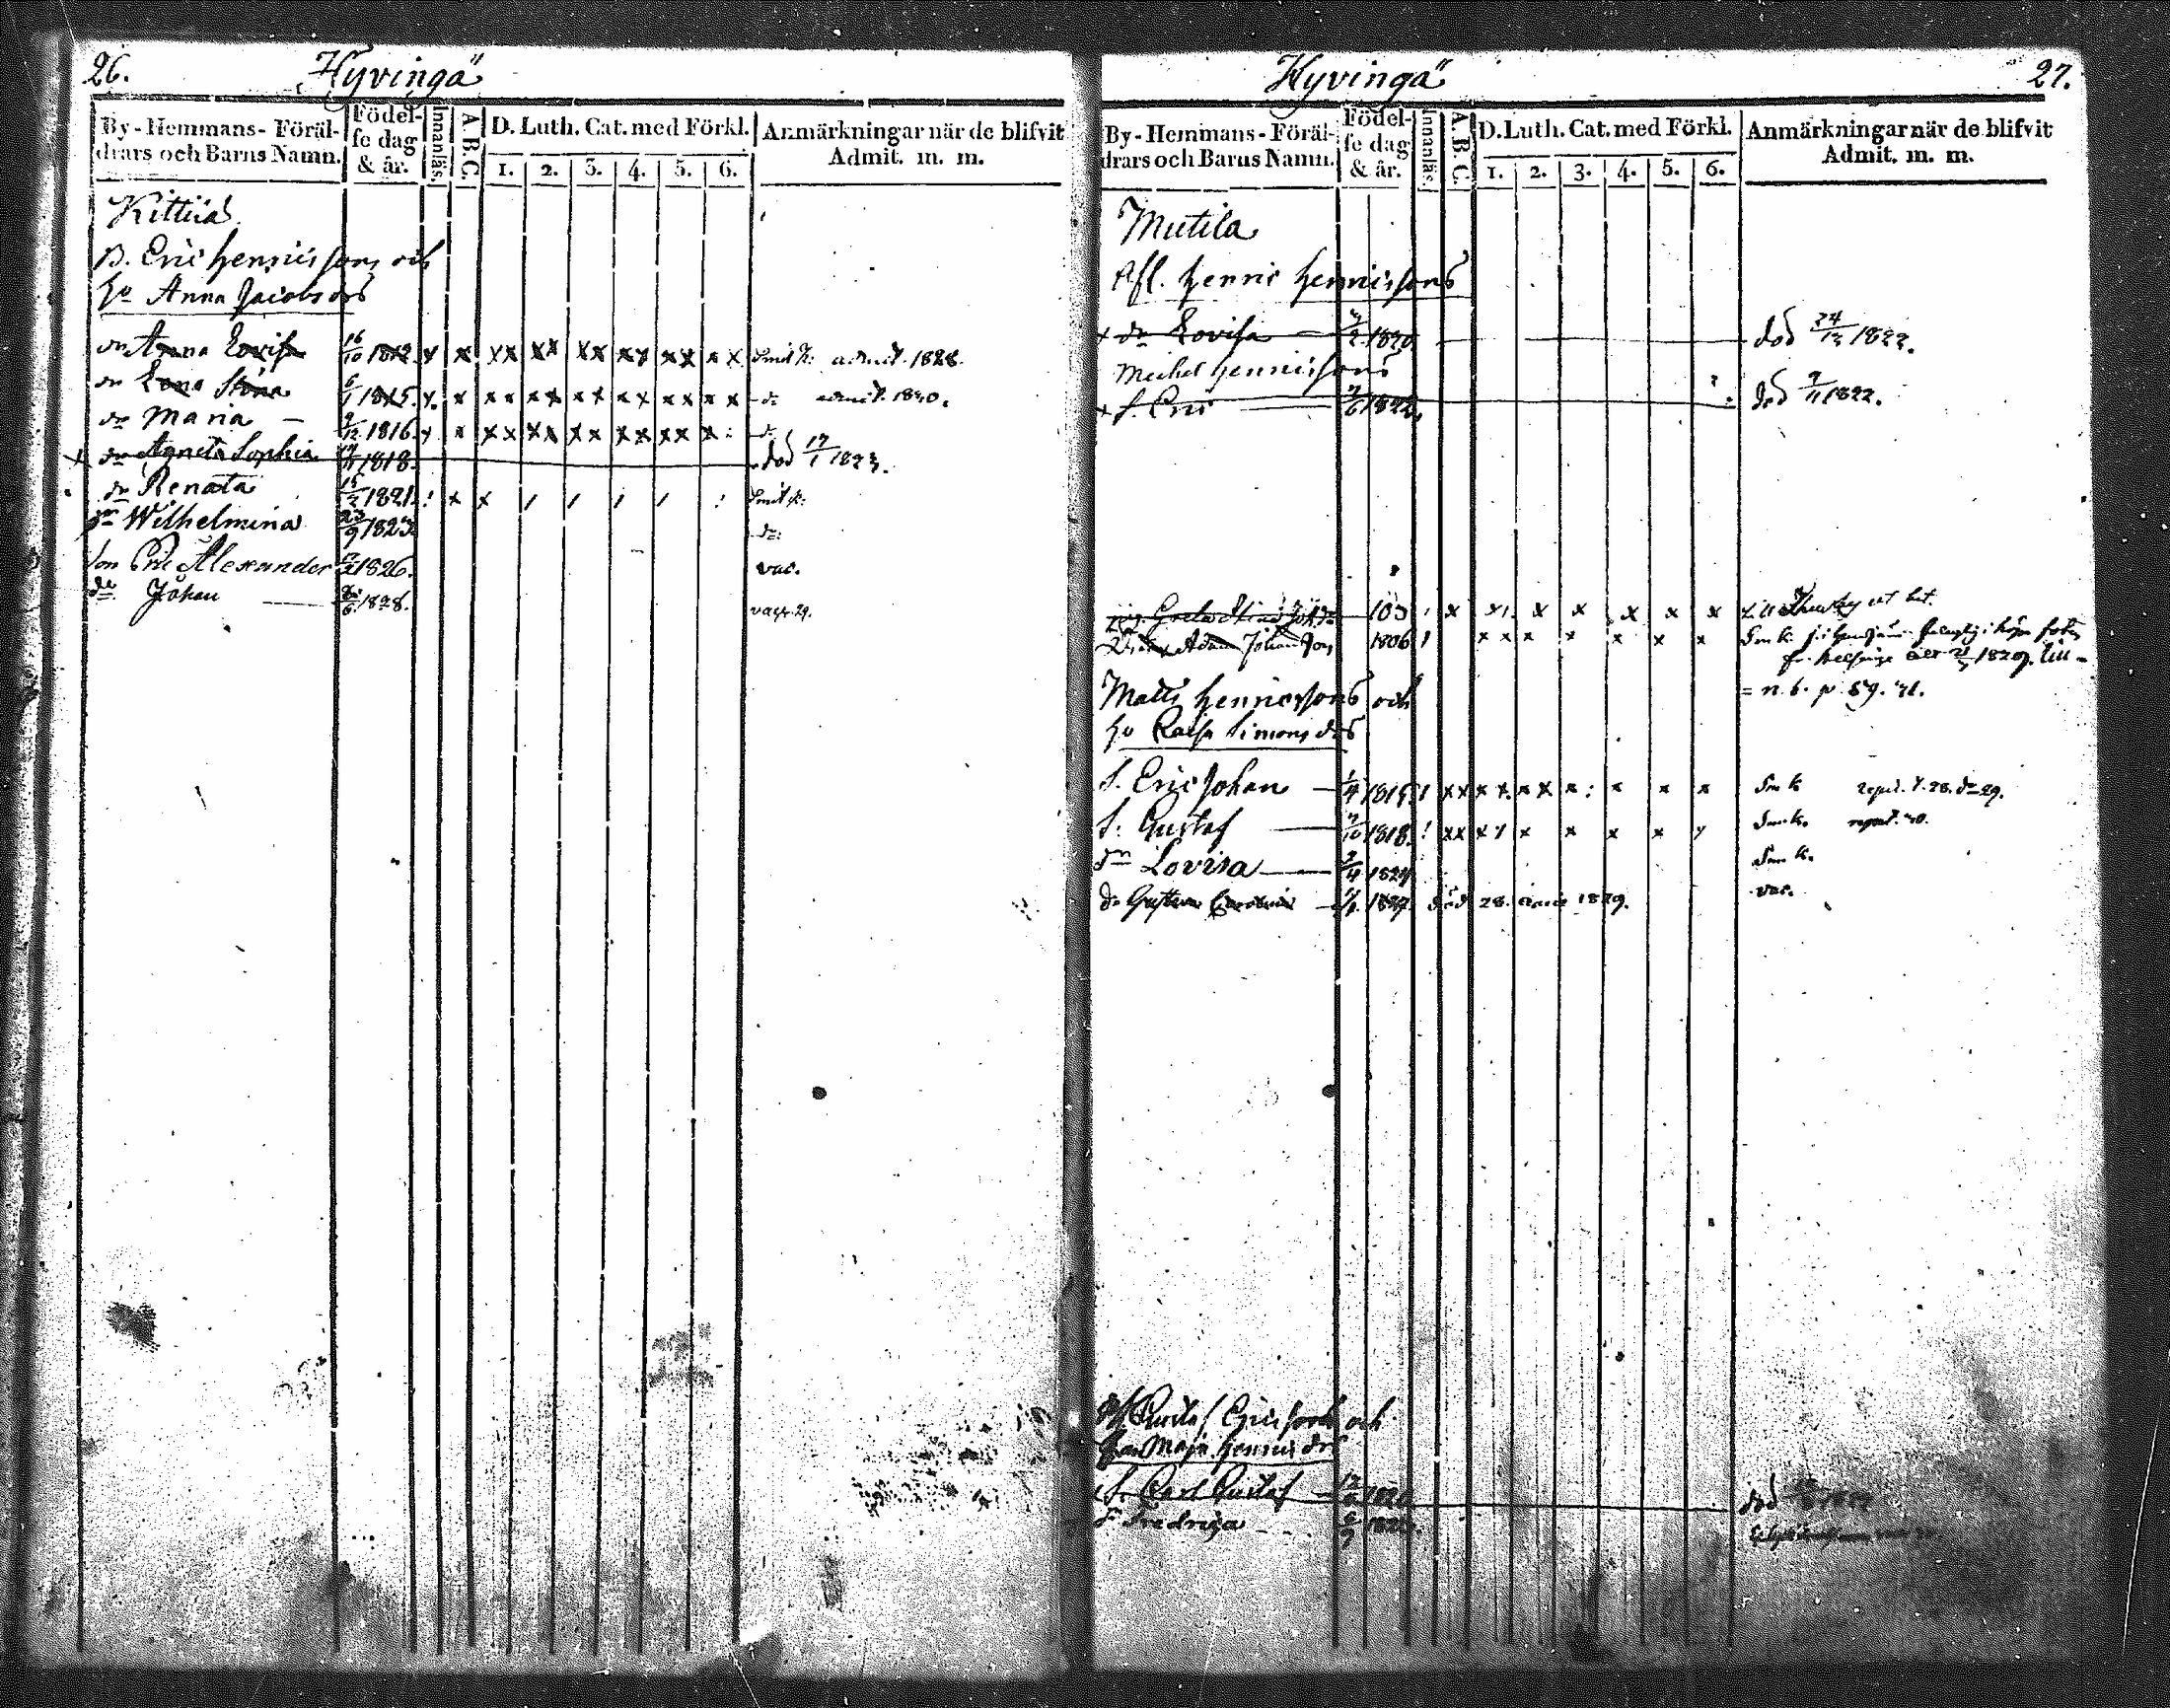 26. Hyvingä
By-Hemmans-Föräl-
drars och Barns Namn.
Födel-
se dag
& år.
Innanläs.
A.B.C.
D. Luth. Cat. med Förkl.
1. 2. 3. 4. 5. 6.
Anmärkningar när de blifvit
Admit. m. m.
Kittilä
B. Eric Henricssons och
hu Anna Jacobsdrs
dr Anna Lovisa 16/10 1812. x x xx xx xx xx xx x x Smit K: admit. 1828.
dr Lena Stina 6/1 1815. x. x xx xx xx xx xx x x do admit. 1830.
dr Maria — 9/12 1816. x x xx xx xx xx xx x: do
x dr Agneta Sophia 1818. död 17/1 1823.
dr Renata 15/2 1821. : x x / / / / : Smit K:
dr Wilhelmina 23/9 1823. do:
Son Eric Alexander 1826. vac.
do Johan — 1828. vac. 29.
Hyvingä 27.
By-Hemmans-Föräl-
drars och Barns Namn.
Födel-
se dag
& år.
Innanläs.
A.B.C.
D. Luth. Cat. med Förkl.
1. 2. 3. 4. 5. 6.
Anmärkningar när de blifvit
Admit. m. m.
Mutila
Afl. Henric Henricssons
x dr Lovisa — 7/2 1820. död 24/12 1822.
Michel Henricssons
x S. Eric — 7/6 1822. död 9/11 1822.
Greta Stina x x x x x x x
Adam Johansson 1806 ! x x x x x x x
1829. till -
= n. b. p. 59.
Matts Henricssons och
hu Caisa Simonsdrs
S. Eric Johan — 1/4 1815. ! xx x x. x x x: x x x Sm k 28. do 29.
S: Gustaf — 7/10 1818. ! xx x x x x x x x Sm k. 30.
dr Lovisa — 7/4 1824. Sm k.
do Gustava Carolina — 1827. död 28. 1829. vac.
Gustaf Ericssons och
Maja Henricsdrs
S. Carl Gustaf — död
dr Fredrica